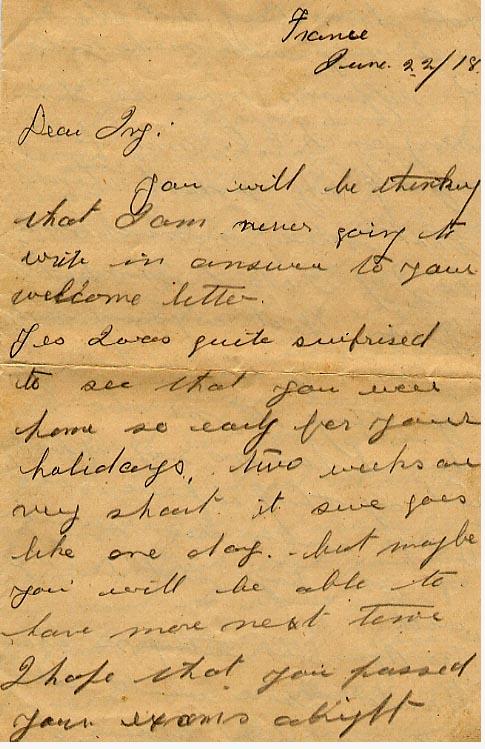 France
June. 22/18.
Dear Ivy:
You will be thinking
that I am never going to
write in answer to your
wellcome letter.
Yes I was quite surprised
to see that you were
home so early for your
holidays, two weeks are
very short it sure goes
like one day. but maybe
you will be able to
have more next time
I hope that you passed
your exams alright